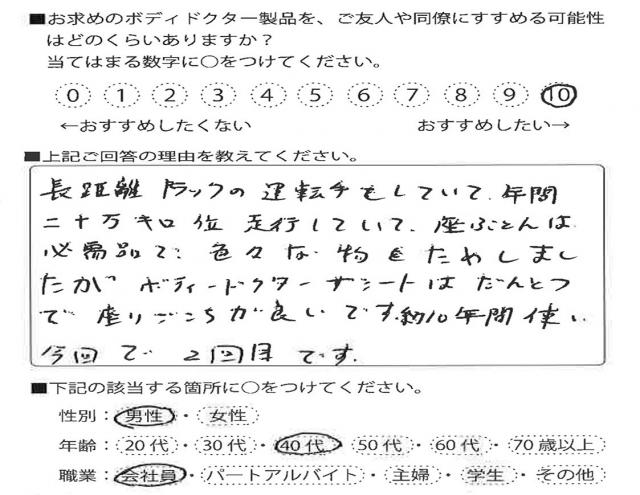 ■お求めのボディドクター製品を、ご友人や同僚にすすめる可能性
はどのくらいありますか？
当てはまる数字に○をつけてください。
0 1 2 3 4 5 6 7 8 9 10
←おすすめしたくない おすすめしたい→
■上記ご回答の理由を教えてください。
長距離トラックの運転手をしていて、年間
二十万キロ位走行していて、座ぶとんは
必需品で、色々な物をためしまし
たが ボディードクターザシートはだんとつ
で座りごこちが良いです。約10年間使い
今回で2回目です。
■下記の該当する箇所に○をつけてください。
性別：男性・女性
年齢：20代・30代・40代・50代・60代・70歳以上
職業：会社員・パートアルバイト・主婦・学生・その他